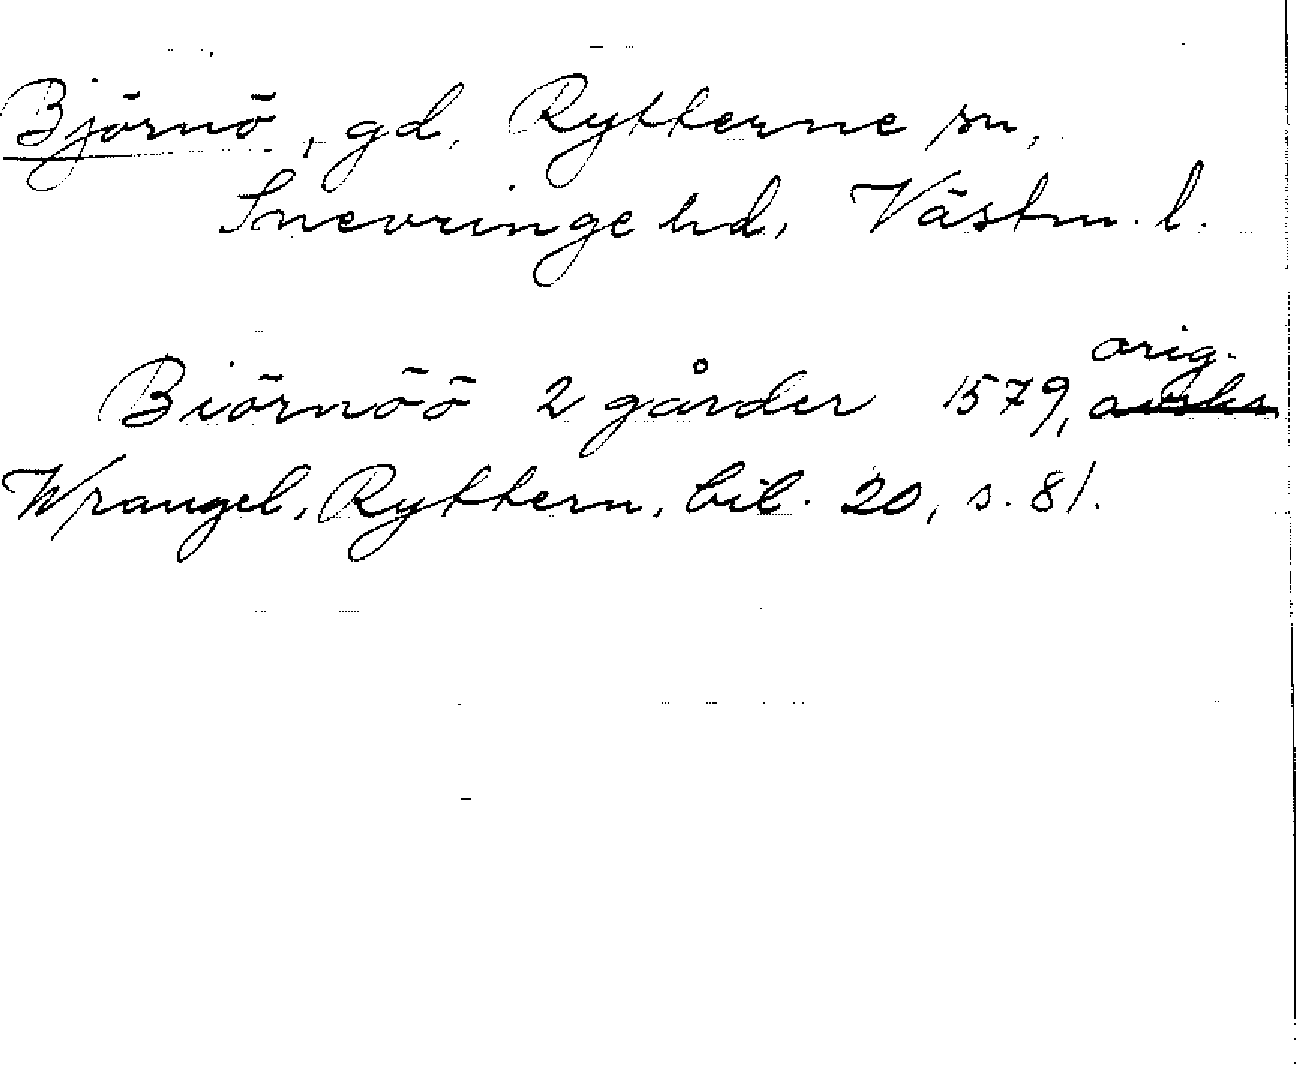 Björnö, gd, Rytterne sn,
Snevringe hd, Västm. l.
Biörnöö 2 gårder 1579, orig.
Wrangel, Ryttern, bil. 20, s. 81.